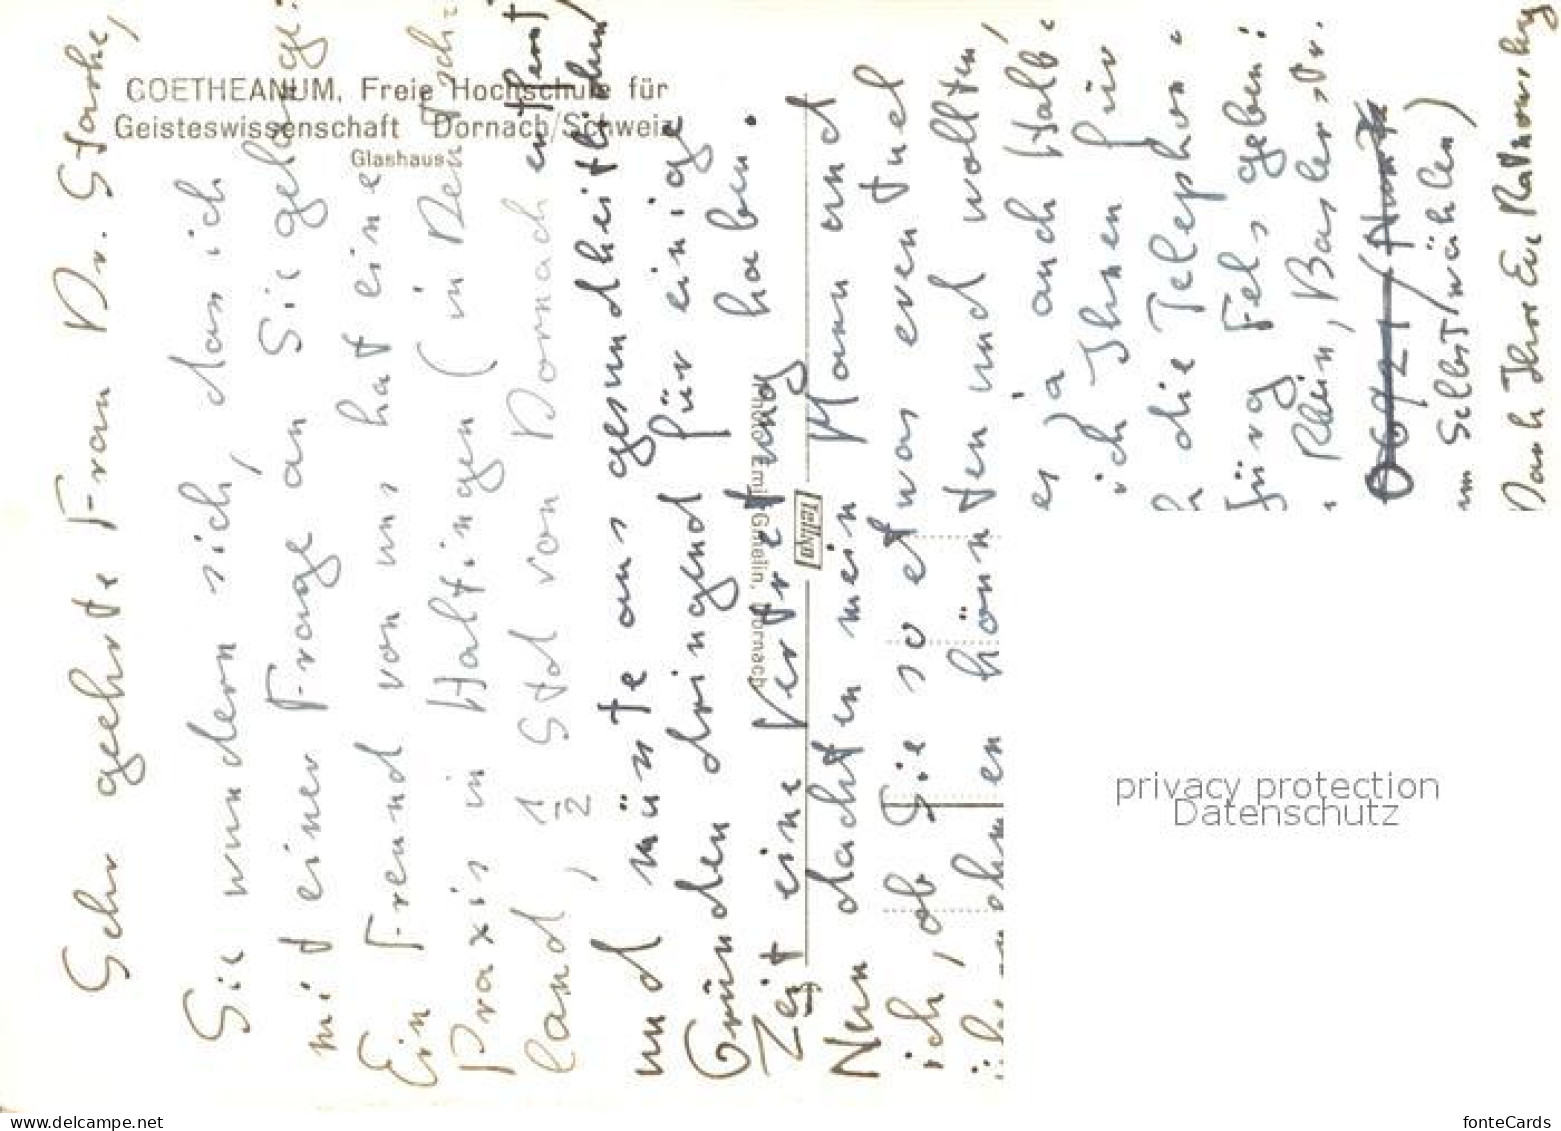 GOETHEANUM, Freie Hochschule für
Geisteswissenschaft Dornach/Schweiz
Glashaus
Photo Emil Gmelin, Dornach
Sehr geehrte Frau Dr. Starke,
Sie wundern sich, dass ich
mit einer Frage an Sie gelange:
Ein Freund von uns hat eine
Praxis in Haltingen (in Deutsch-
land, 1/2 Std von Dornach entfernt
und müsste aus gesundheitlichen
Gründen dringend für einige
Zeit eine Vertretung haben.
Nun dachten mein Mann und
ich, ob Sie so etwas eventuel
übernehmen könnten und wollten,
es ja auch Halb
ich Ihnen für
die Telephon
Jürg Fels geben:
Rhein, Baslerstr.
06921/
Selbstwählen)
Dank Ihre Eva
privacy protection
Datenschutz
www.delcampe.net
fonteCards